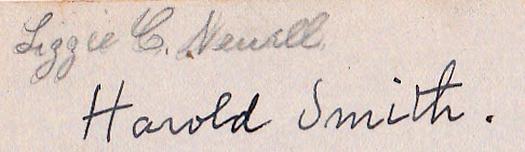 Lizzie C. Newell
Harold Smith.